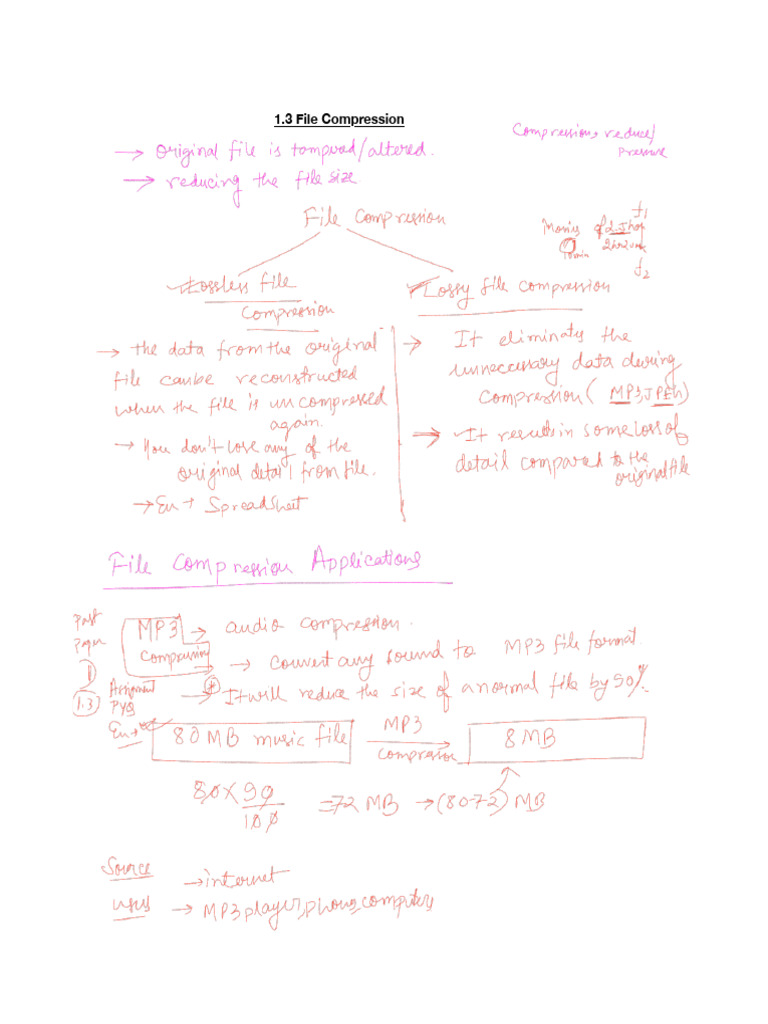 1.3 File Compression
Compression, reduce/
pressure
→ Original file is tampered/altered.
→ reducing the file size
File Compression
f1
2hr
10min
f2
Lossless file
Compression
Lossy file compression
→ the data from the original
file can be reconstructed
when the file is uncompressed
again.
→ You don't lose any of the
original detail from file.
→ Ex → Spreadsheet
→ It eliminates the
unneccessary data during
compression (MP3, JPEG)
→ It results in some loss of
detail compared to the
original file
File Compression Applications
Past
Paper
1
1.3
Assignment
PYQ
MP3 → audio compression.
Compression
→ Convert any sound to MP3 file format
→ It will reduce the size of a normal file by 90%.
Ex →
80 MB music file
MP3
compression
8 MB
80 × 90
100
= 72 MB → (80-72) MB
Source
→ internet
uses
→ MP3 player, phone, computers